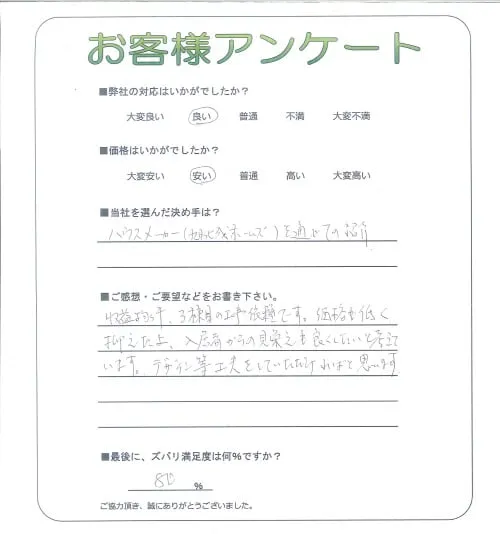 お客様アンケート
■弊社の対応はいかがでしたか？
大変良い 良い 普通 不満 大変不満
■価格はいかがでしたか？
大変安い 安い 普通 高い 大変高い
■当社を選んだ決め手は？
ハウスメーカー(旭化成ホームズ)を通じての紹介
■ご感想・ご要望などをお書き下さい。
収益物件、3棟目の工事依頼です。価格を低く
抑えた上、入居者からの見栄えも良くしたいと考えて
います。デザイン等工夫をしていただければと思います
■最後に、ズバリ満足度は何％ですか？
80 ％
ご協力頂き、誠にありがとうございました。